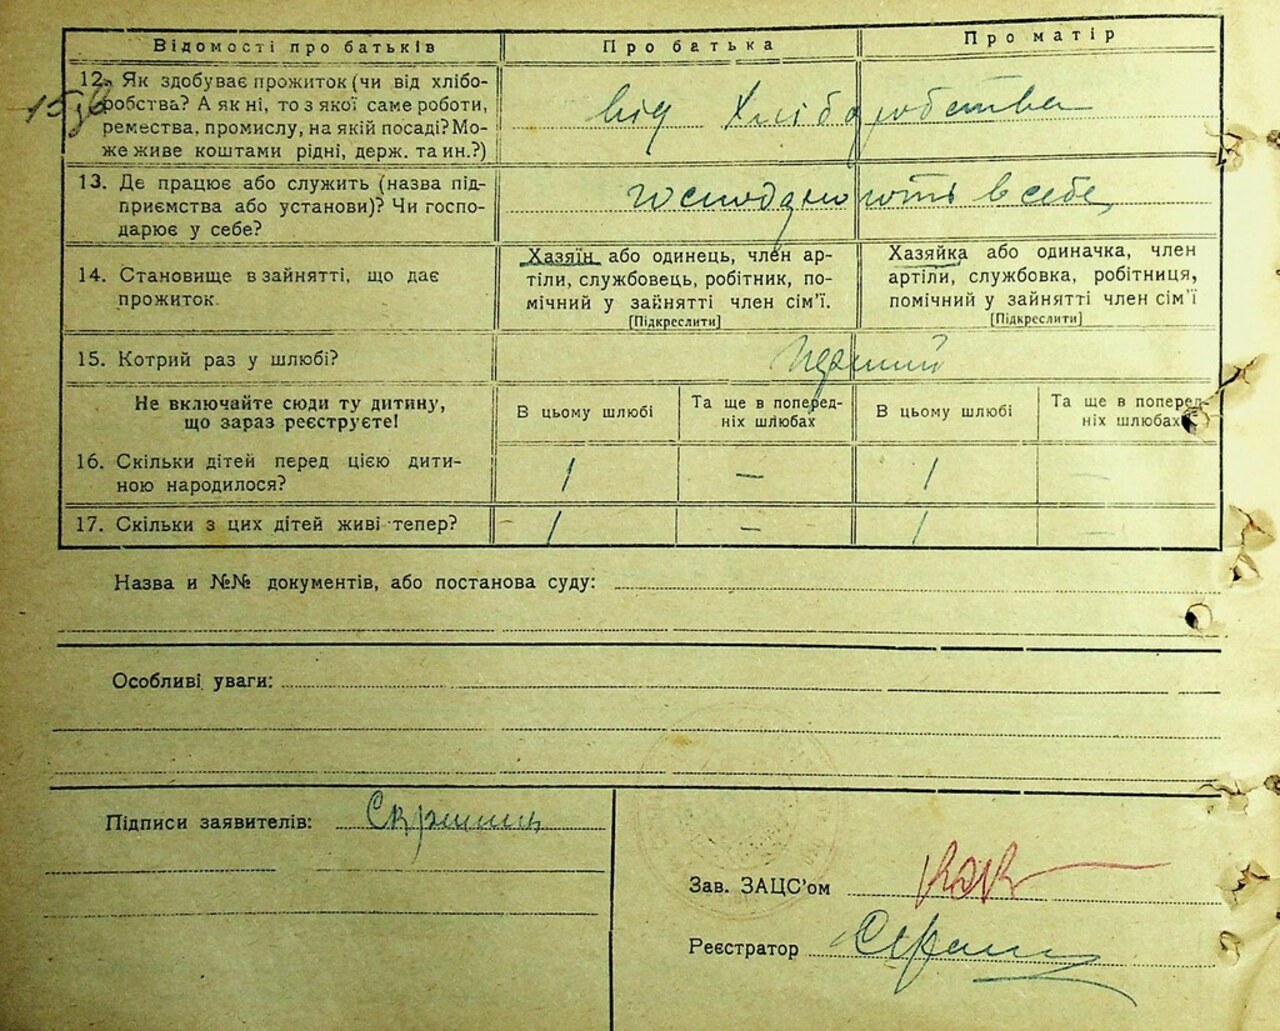 Відомості про батьків
Про батька
Про матір
12. Як здобуває прожиток (чи від хлібо-
робства? А як ні, то з якої саме роботи,
ремества, промислу, на якій посаді? Мо-
же живе коштами рідні, держ. та ин.?)
від Хліборобства
13. Де працює або служить (назва під-
приємства або установи)? Чи госпо-
дарює у себе?
господарюють в себе
14. Становище в зайнятті, що дає
прожиток.
Хазяїн або одинець, член ар-
тіли, службовець, робітник, по-
мічний у зайнятті член сім'ї.
[Підкреслити]
Хазяйка або одиначка, член
артіли, службовка, робітниця,
помічний у зайнятті член сім'ї
[Підкреслити]
15. Котрий раз у шлюбі?
Перший
Не включайте сюди ту дитину,
що зараз реєструєте!
В цьому шлюбі
Та ще в поперед-
ніх шлюбах
В цьому шлюбі
Та ще в поперед-
ніх шлюбах
16. Скільки дітей перед цією дити-
ною народилося?
1 — 1 —
17. Скільки з цих дітей живі тепер?
1 — 1 —
Назва и №№ документів, або постанова суду:
Особливі уваги:
Підписи заявителів:
Зав. ЗАЦС'ом
Реєстратор